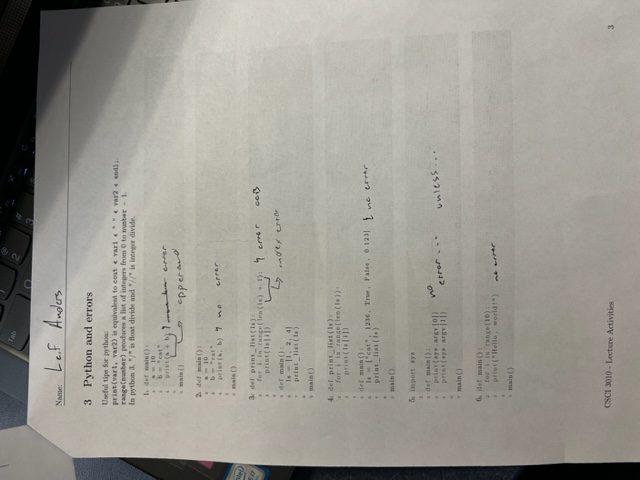 Tab
Name: Leif Anders
3 Python and errors
Useful tips for python:
print(var1, var2) is equivalent to cout « var1 « " " « var2 « endl;.
range(number) produces a list of integers from 0 to number - 1.
In python 3, "/" is float divide and "//" is integer divide.
1. def main():
a = 10
b = "cat"
print(a + b) error
main() opperand
2. def main():
a = 10
b = "cat"
print(a, b) no error
main()
3. def print_list(ls):
for i in range(len(ls) + 1): error OOB
print(ls[i]) index error
def main():
ls = [1, 2, 4]
print_list(ls)
main()
4. def print_list(ls):
for i in range(len(ls)):
print(ls[i])
def main():
ls = ["cat", 1236, True, False, 0.123] no error
print_list(ls)
main()
5. import sys
def main():
print(sys.argv[0]) no
print(sys.argv[1]) error... unless...
main()
6. def main():
for i in range(10):
print("Hello, world!") no error
main()
CSCI 3010 - Lecture Activities 3